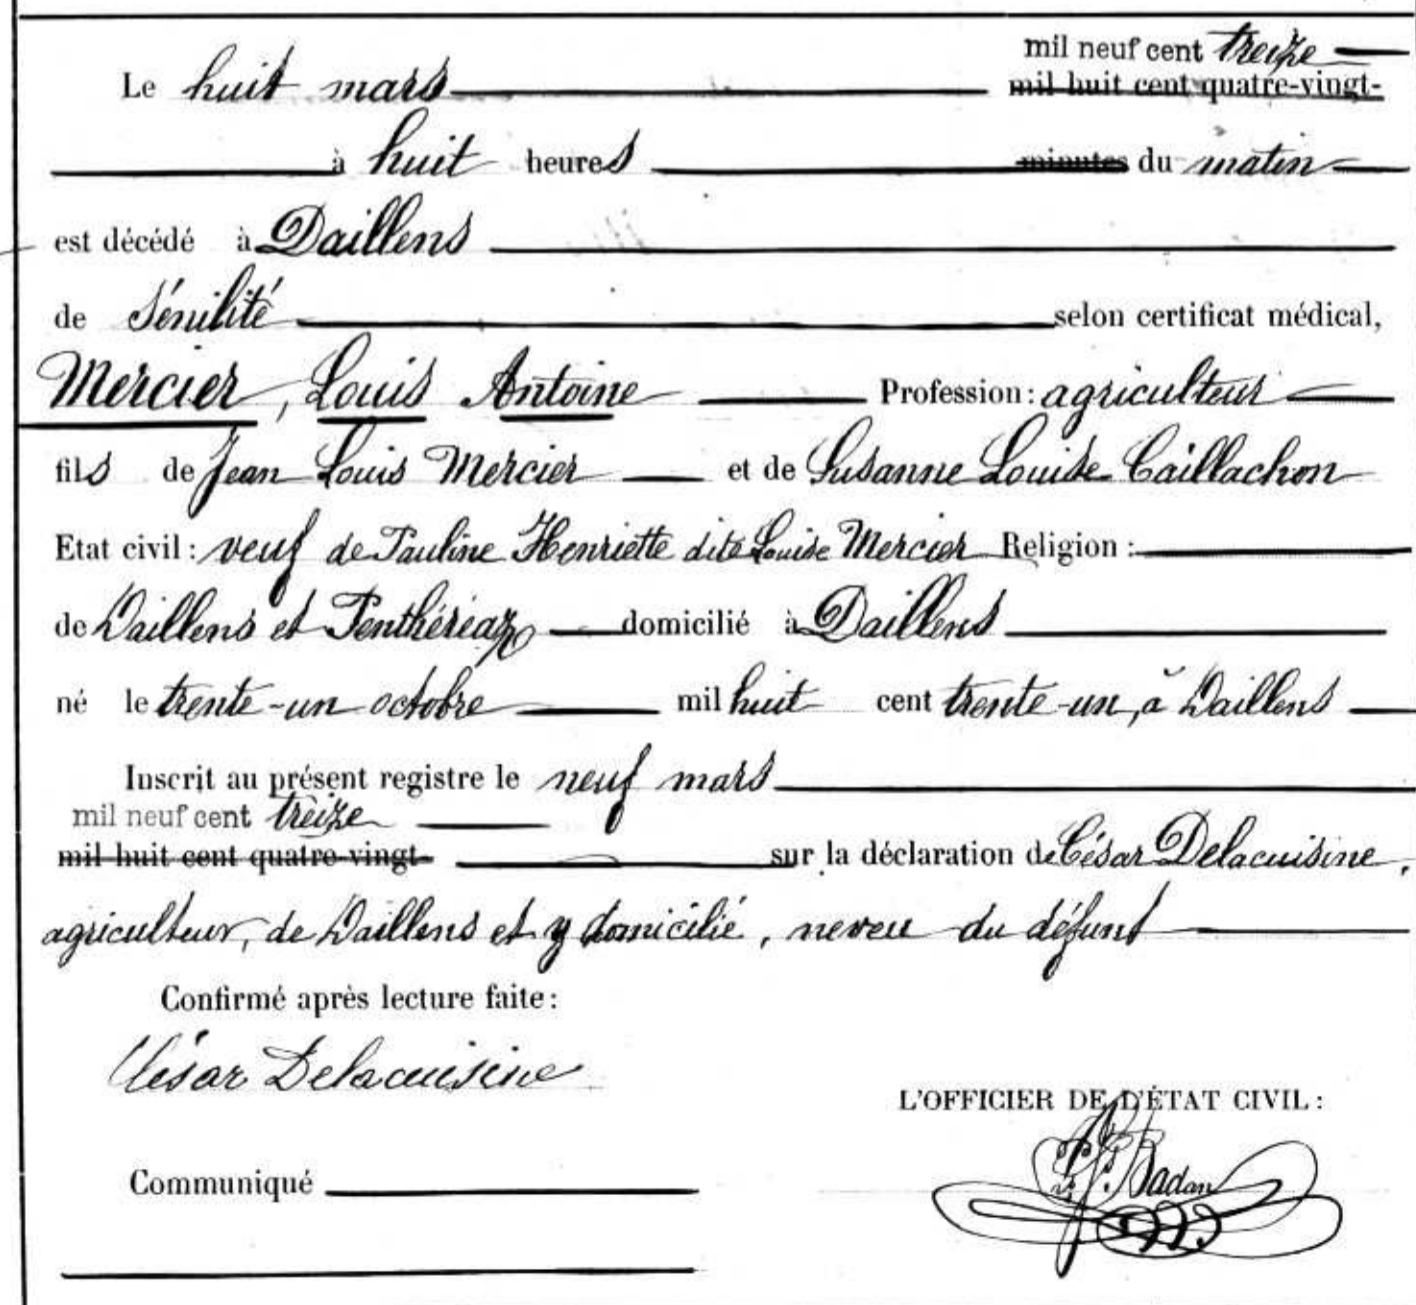 mil neuf cent treize
Le huit mars mil huit cent quatre-vingt-
à huit heures minutes du matin
est décédé à Daillens
de Sénilité selon certificat médical,
Mercier, Louis Antoine Profession: agriculteur
fils de Jean Louis Mercier et de Susanne Louise Caillachon
Etat civil: veuf de Pauline Henriette dite Louise Mercier Religion:
de Daillens et Penthéréaz domicilié à Daillens
né le trente-un octobre mil huit cent trente-un, à Daillens
Inscrit au présent registre le neuf mars
mil neuf cent treize
mil huit cent quatre-vingt- sur la déclaration de César Delacuisine,
agriculteur, de Daillens et y domicilié, neveu du défunt
Confirmé après lecture faite:
César Delacuisine
L'OFFICIER DE L'ÉTAT CIVIL:
Badan
Communiqué